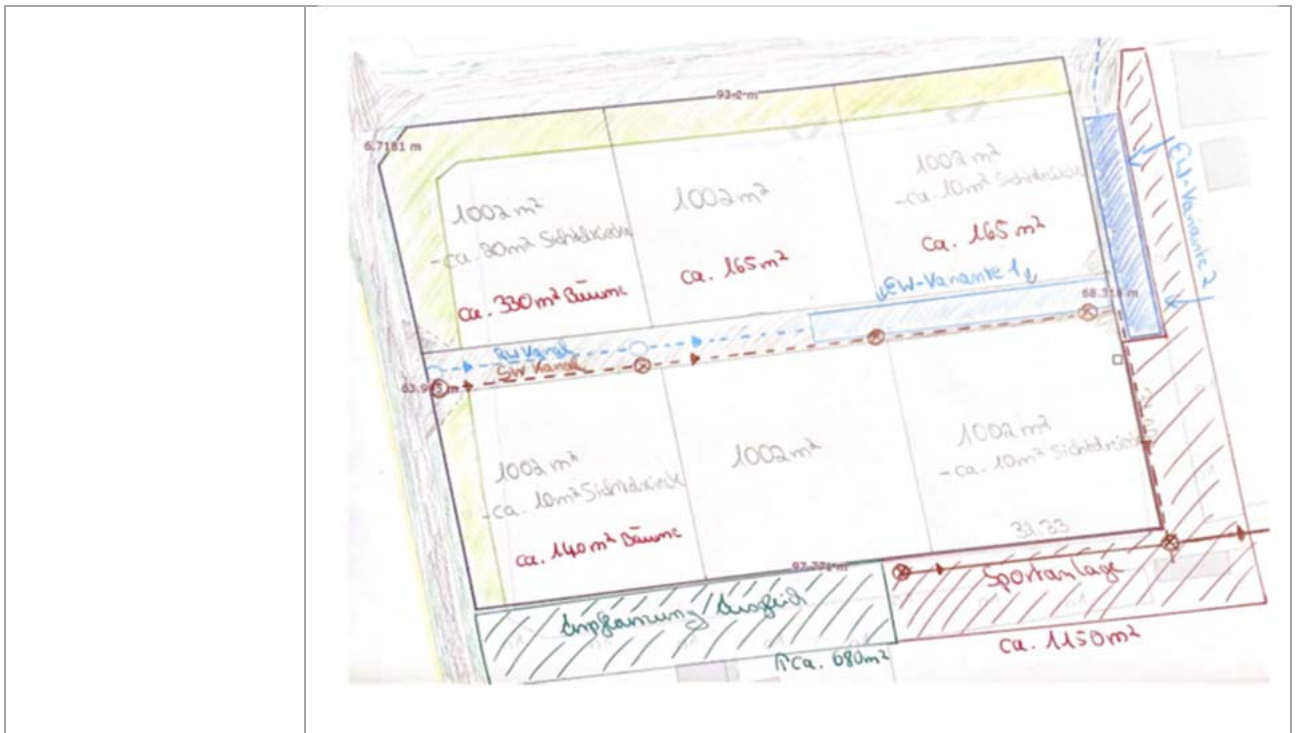 93.2 m
6.7181 m
1002 m²
-ca. 20m² Sichtdreieck
ca. 330 m² Bäume
1002 m²
ca. 165 m²
1002 m²
-ca. 10m² Sichtdreieck
ca. 165 m²
EW-Variante 2
EW-Variante 1
RW Kanal
SW Kanal
1002 m²
-ca. 10m² Sichtdreieck
ca. 140 m² Bäume
1002 m²
1002 m²
-ca. 10m² Sichtdreieck
Anpflanzung / Ausgleich
ca. 680m²
Sportanlage
ca. 1150 m²